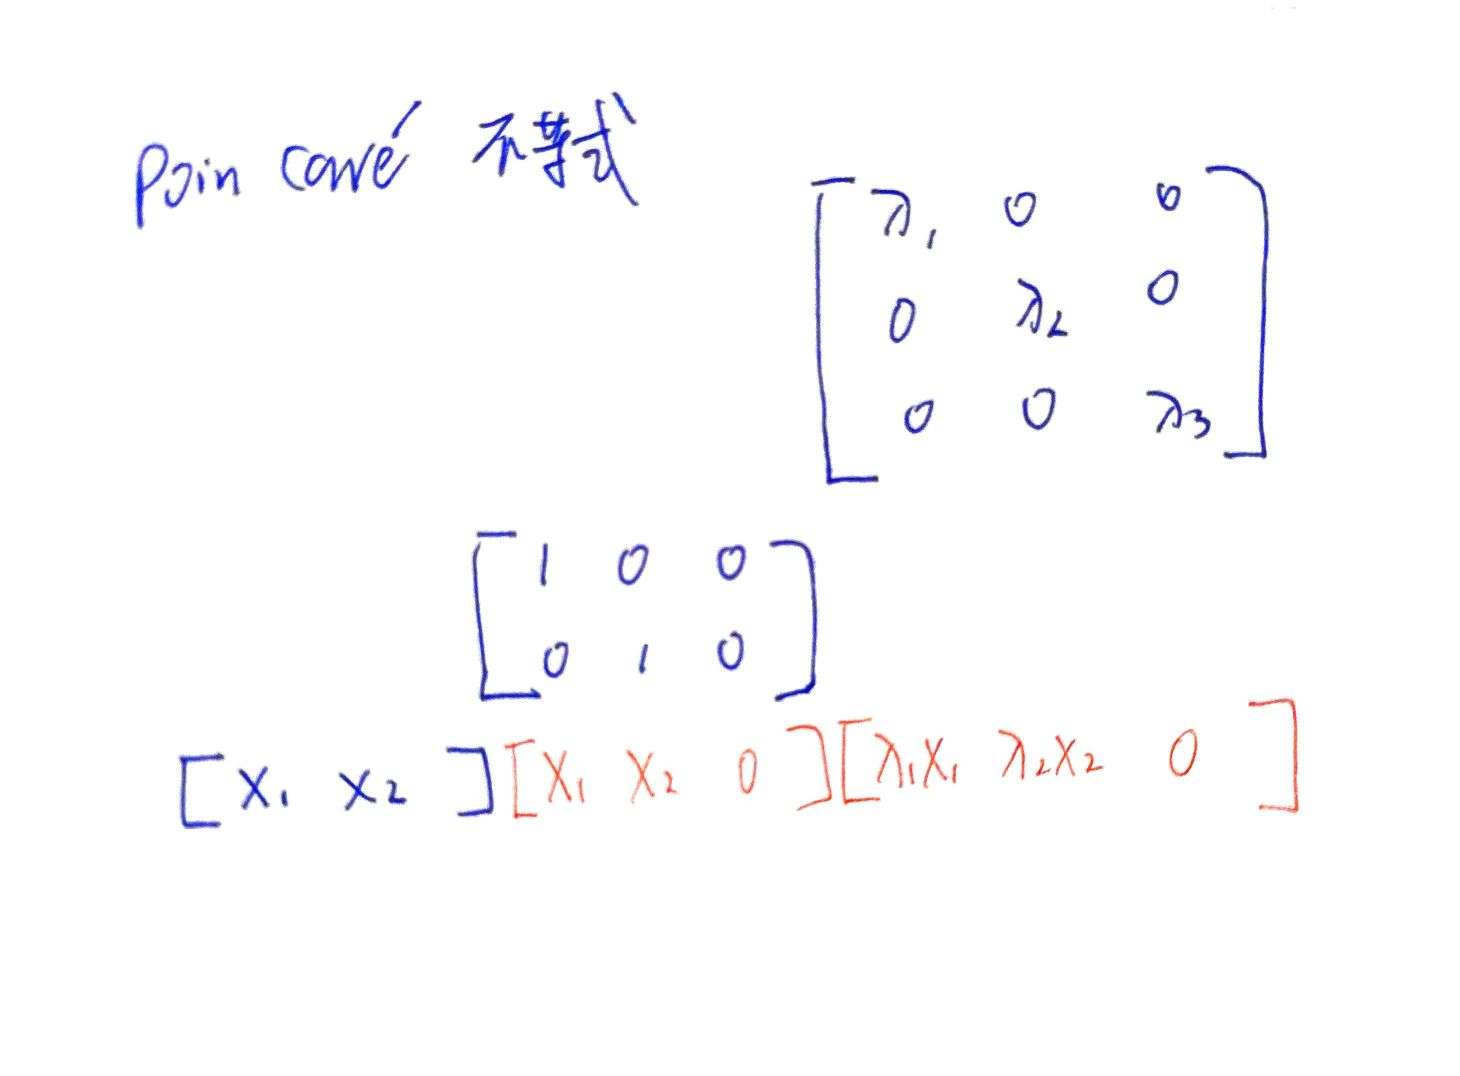 Poin caré 不等式
[λ₁ 0 0
0 λ₂ 0
0 0 λ₃]
[1 0 0
0 1 0]
[x₁ x₂] [x₁ x₂ 0] [λ₁x₁ λ₂x₂ 0]